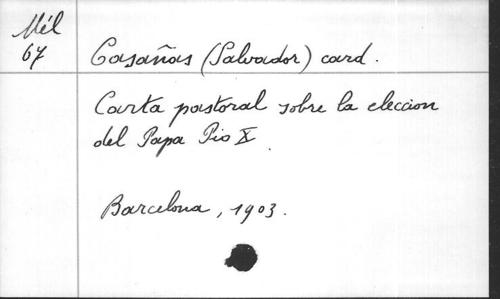 Mél
67
Casañas (Salvador) card.
Carta pastoral sobre la eleccion
del Papa Pio X.
Barcelona, 1903.